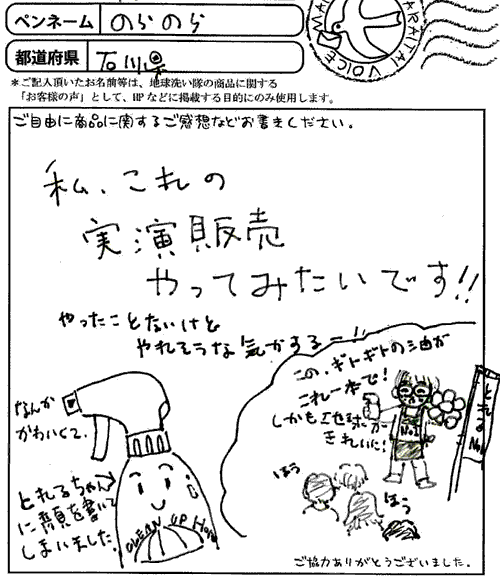 ペンネーム のらのら
都道府県 石川県
＊ご記入頂いたお名前等は、地球洗い隊の商品に関する
「お客様の声」として、HPなどに掲載する目的にのみ使用します。
ARAITAI VOICE
ご自由に商品に関するご感想などお書きください。
私、これの
実演販売
やってみたいです!!
やったことないけど
やれそうな気がするー!!
この、ギトギトの油が
これ一本で!
しかも地球が
きれいに!
とれる No.1
No.1
ほう
ほう
なんか
かわいくて、
とれるちゃん
に顔を書いて
しまいました。
CLEAN UP
ご協力ありがとうございました。